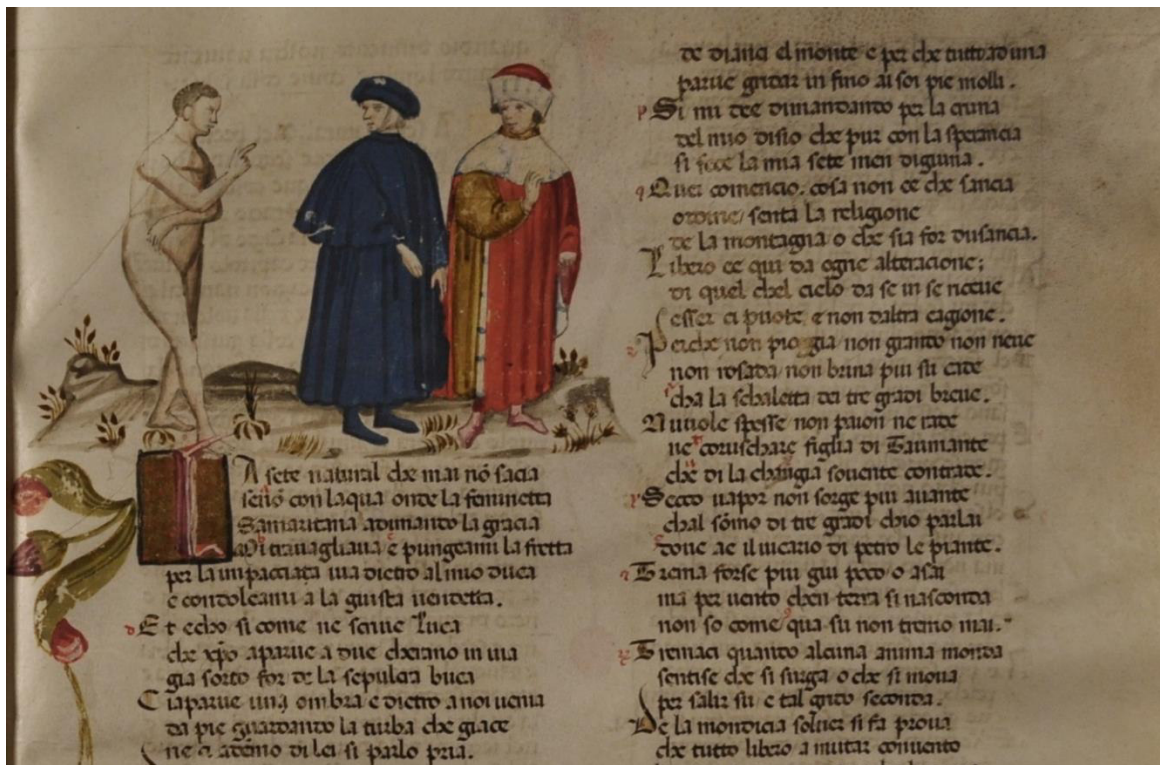 LA sete natural che mai nō sacia
se nō con laqua onde la feminetta
Samaritana adimando la gracia
Mi travagliava e pungeami la fretta
per la impacciata via dietro al mio duca
e condoleami a la giusta vendetta.
Et echo si come ne scrive Luca
che xp̄o aparve a due cherano in via
gia sorto for de la sepulcra buca
Ci aparve una ombra e dietro a noi venia
da pie guardando la turba che giace
ne ci adēmo di lei si parlo pria.
parve gridar in fino ai soi pie molli.
Si mi die dimandando per la cruna
del mio disio che pur con la sperancia
si fece la mia sete men digiuna.
Quei comencio. cosa non ce che sancia
ordine senta la religione
de la montagna o che sia for dusancia.
Libero ce qui da ogne alteracione;
di quel chel cielo da se in se receve
esser ci puote e non daltra cagione.
Perche non pioggia non grando non neve
non rosada non brina piu su cade
cha la schaletta dei tre gradi breve.
Nuvole spesse non paion ne rade
ne coruschare figlia di Taumante
che di la changia sovente contrade.
Secco vapor non sorge piu avante
chal sōmo di tre gradi chio parlai
dove ae il vicario di petro le piante.
Trema forse piu giu poco o asai
ma per vento chen terra si nasconda
non so come qua su non tremo mai.
Tremaci quando alcuna anima monda
sentise che si surga o che si mova
per salir su e tal grido seconda.
De la mondicia solver si fa prova
che tutto libero a mutar convento